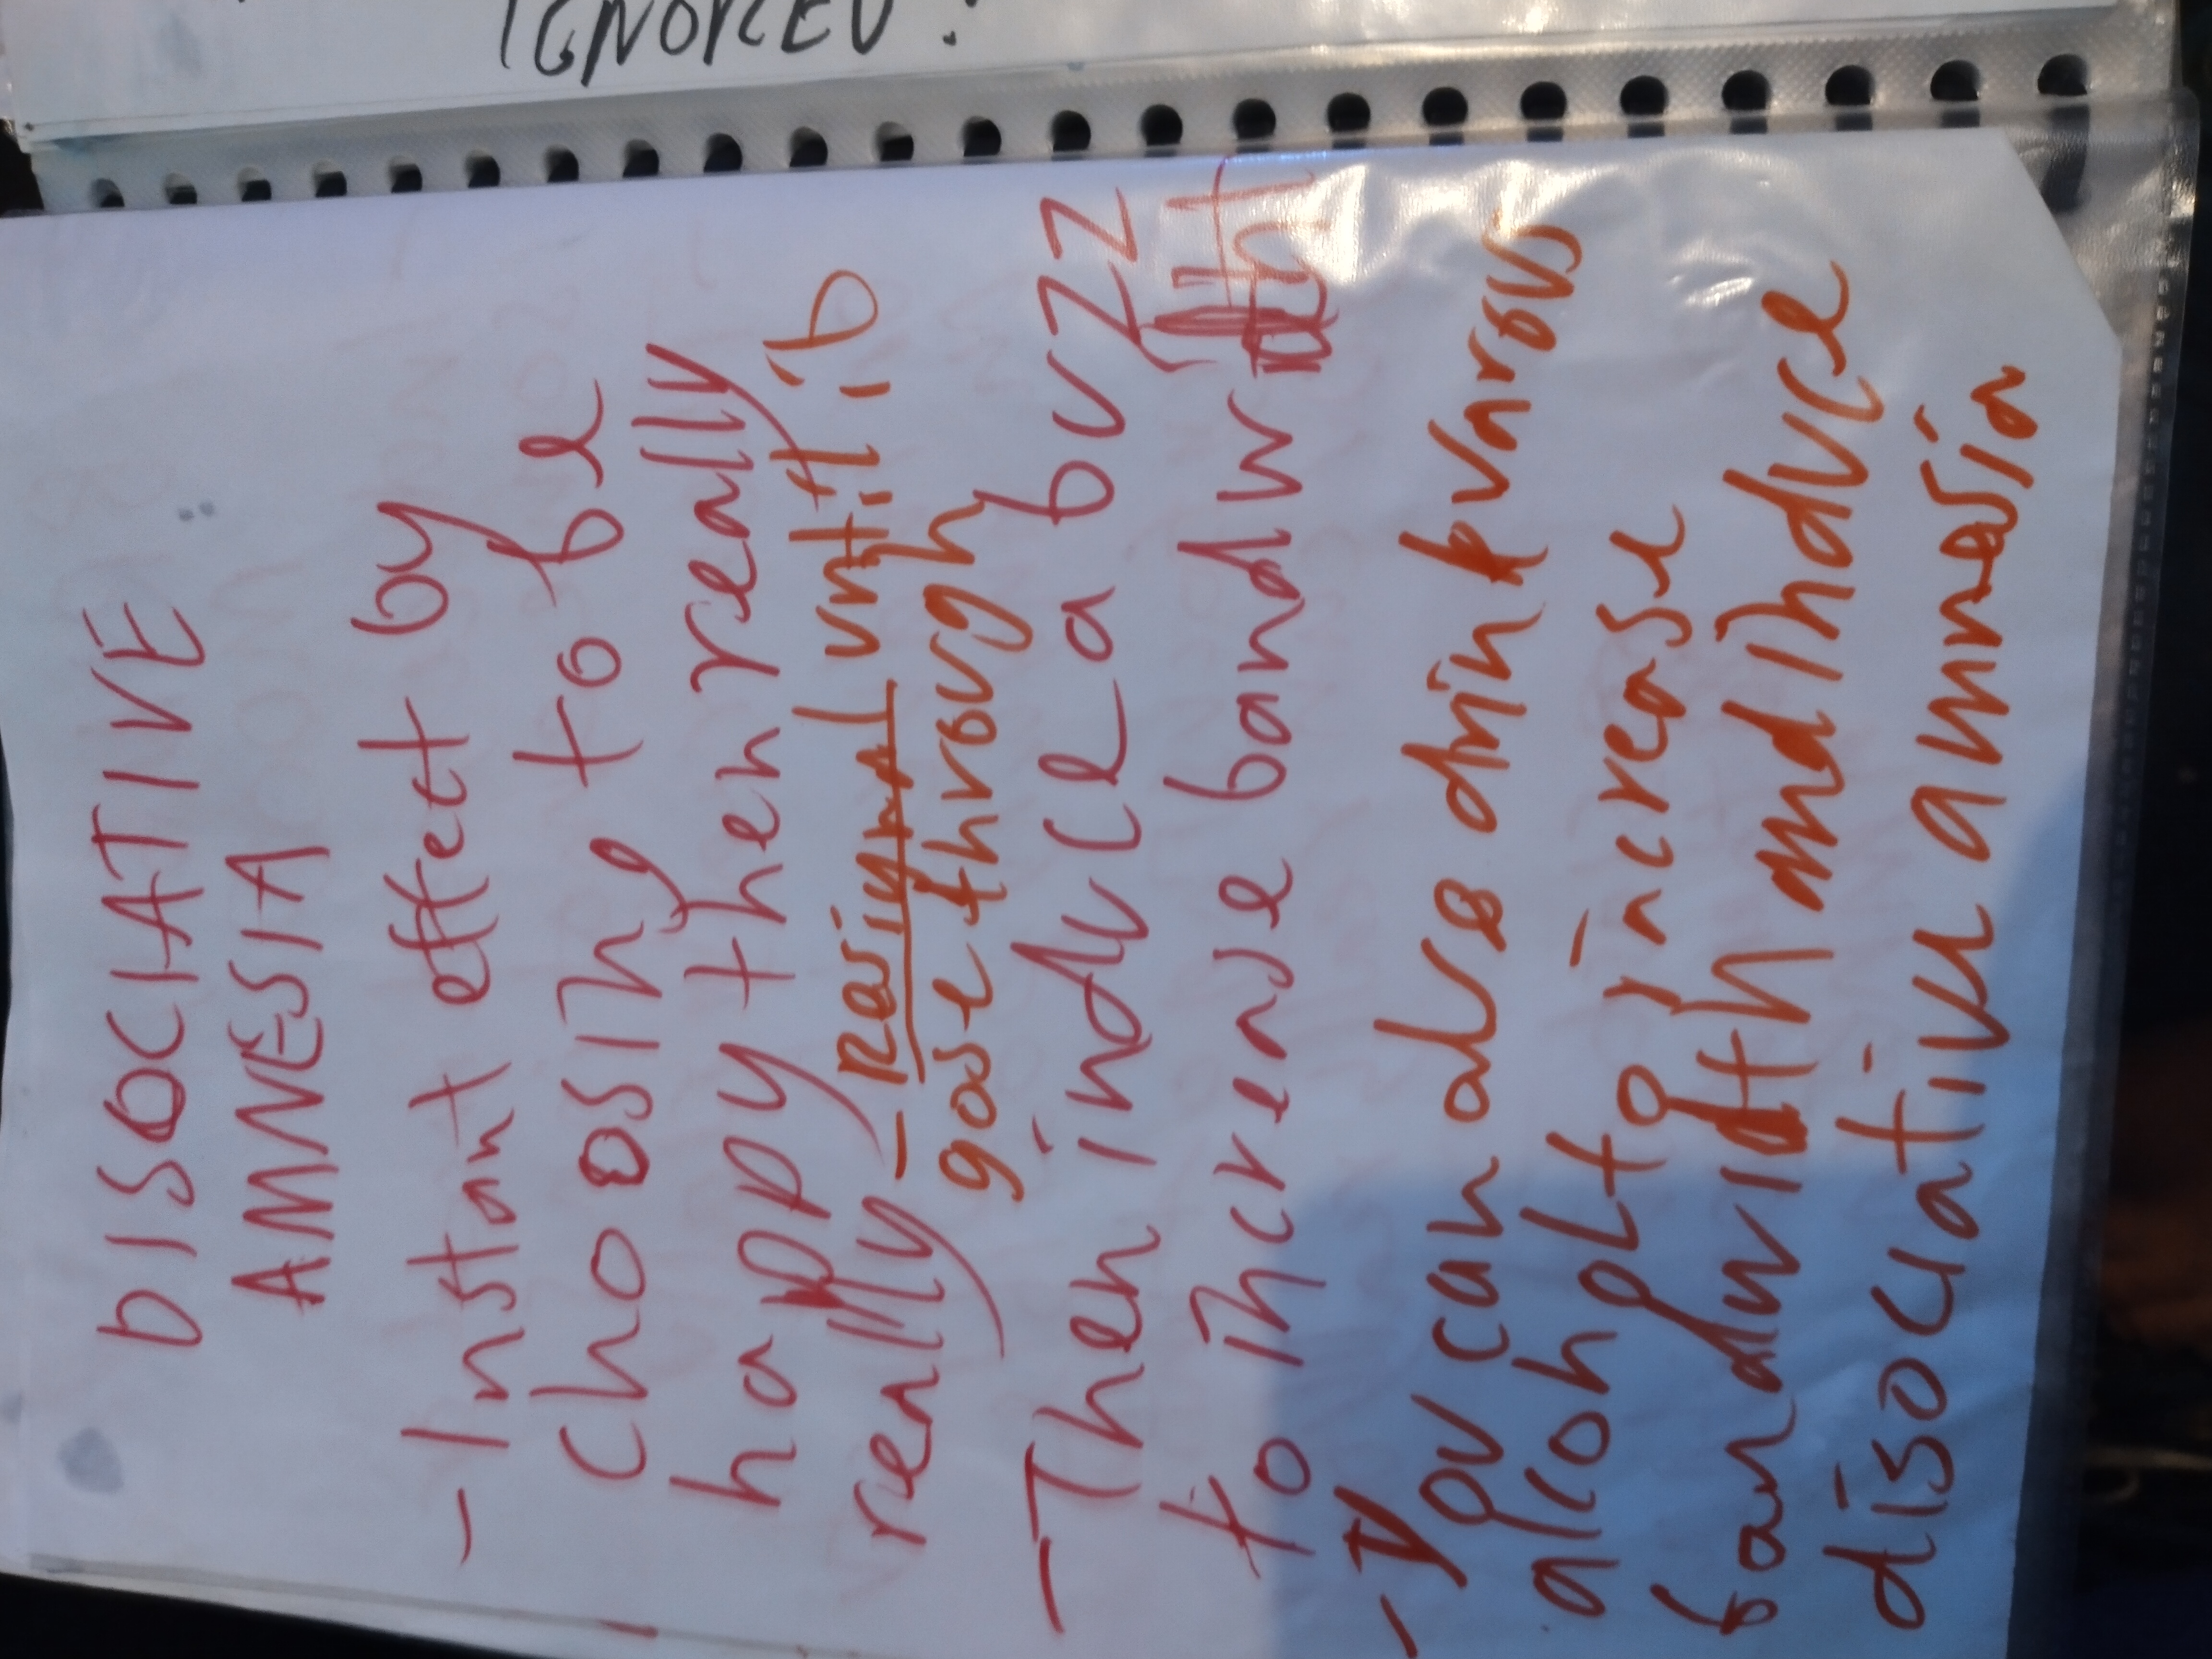 IGNORED!
DISOCIATIVE
AMNESIA
- Instant effect by
chosing to be
happy then really
really - Resignal until it's
gose through
- Then induce a buzz
to increase bandwidth
- You can also drink kvarsus
alcohol to increase
bandwidth and induce
disociative amnesia